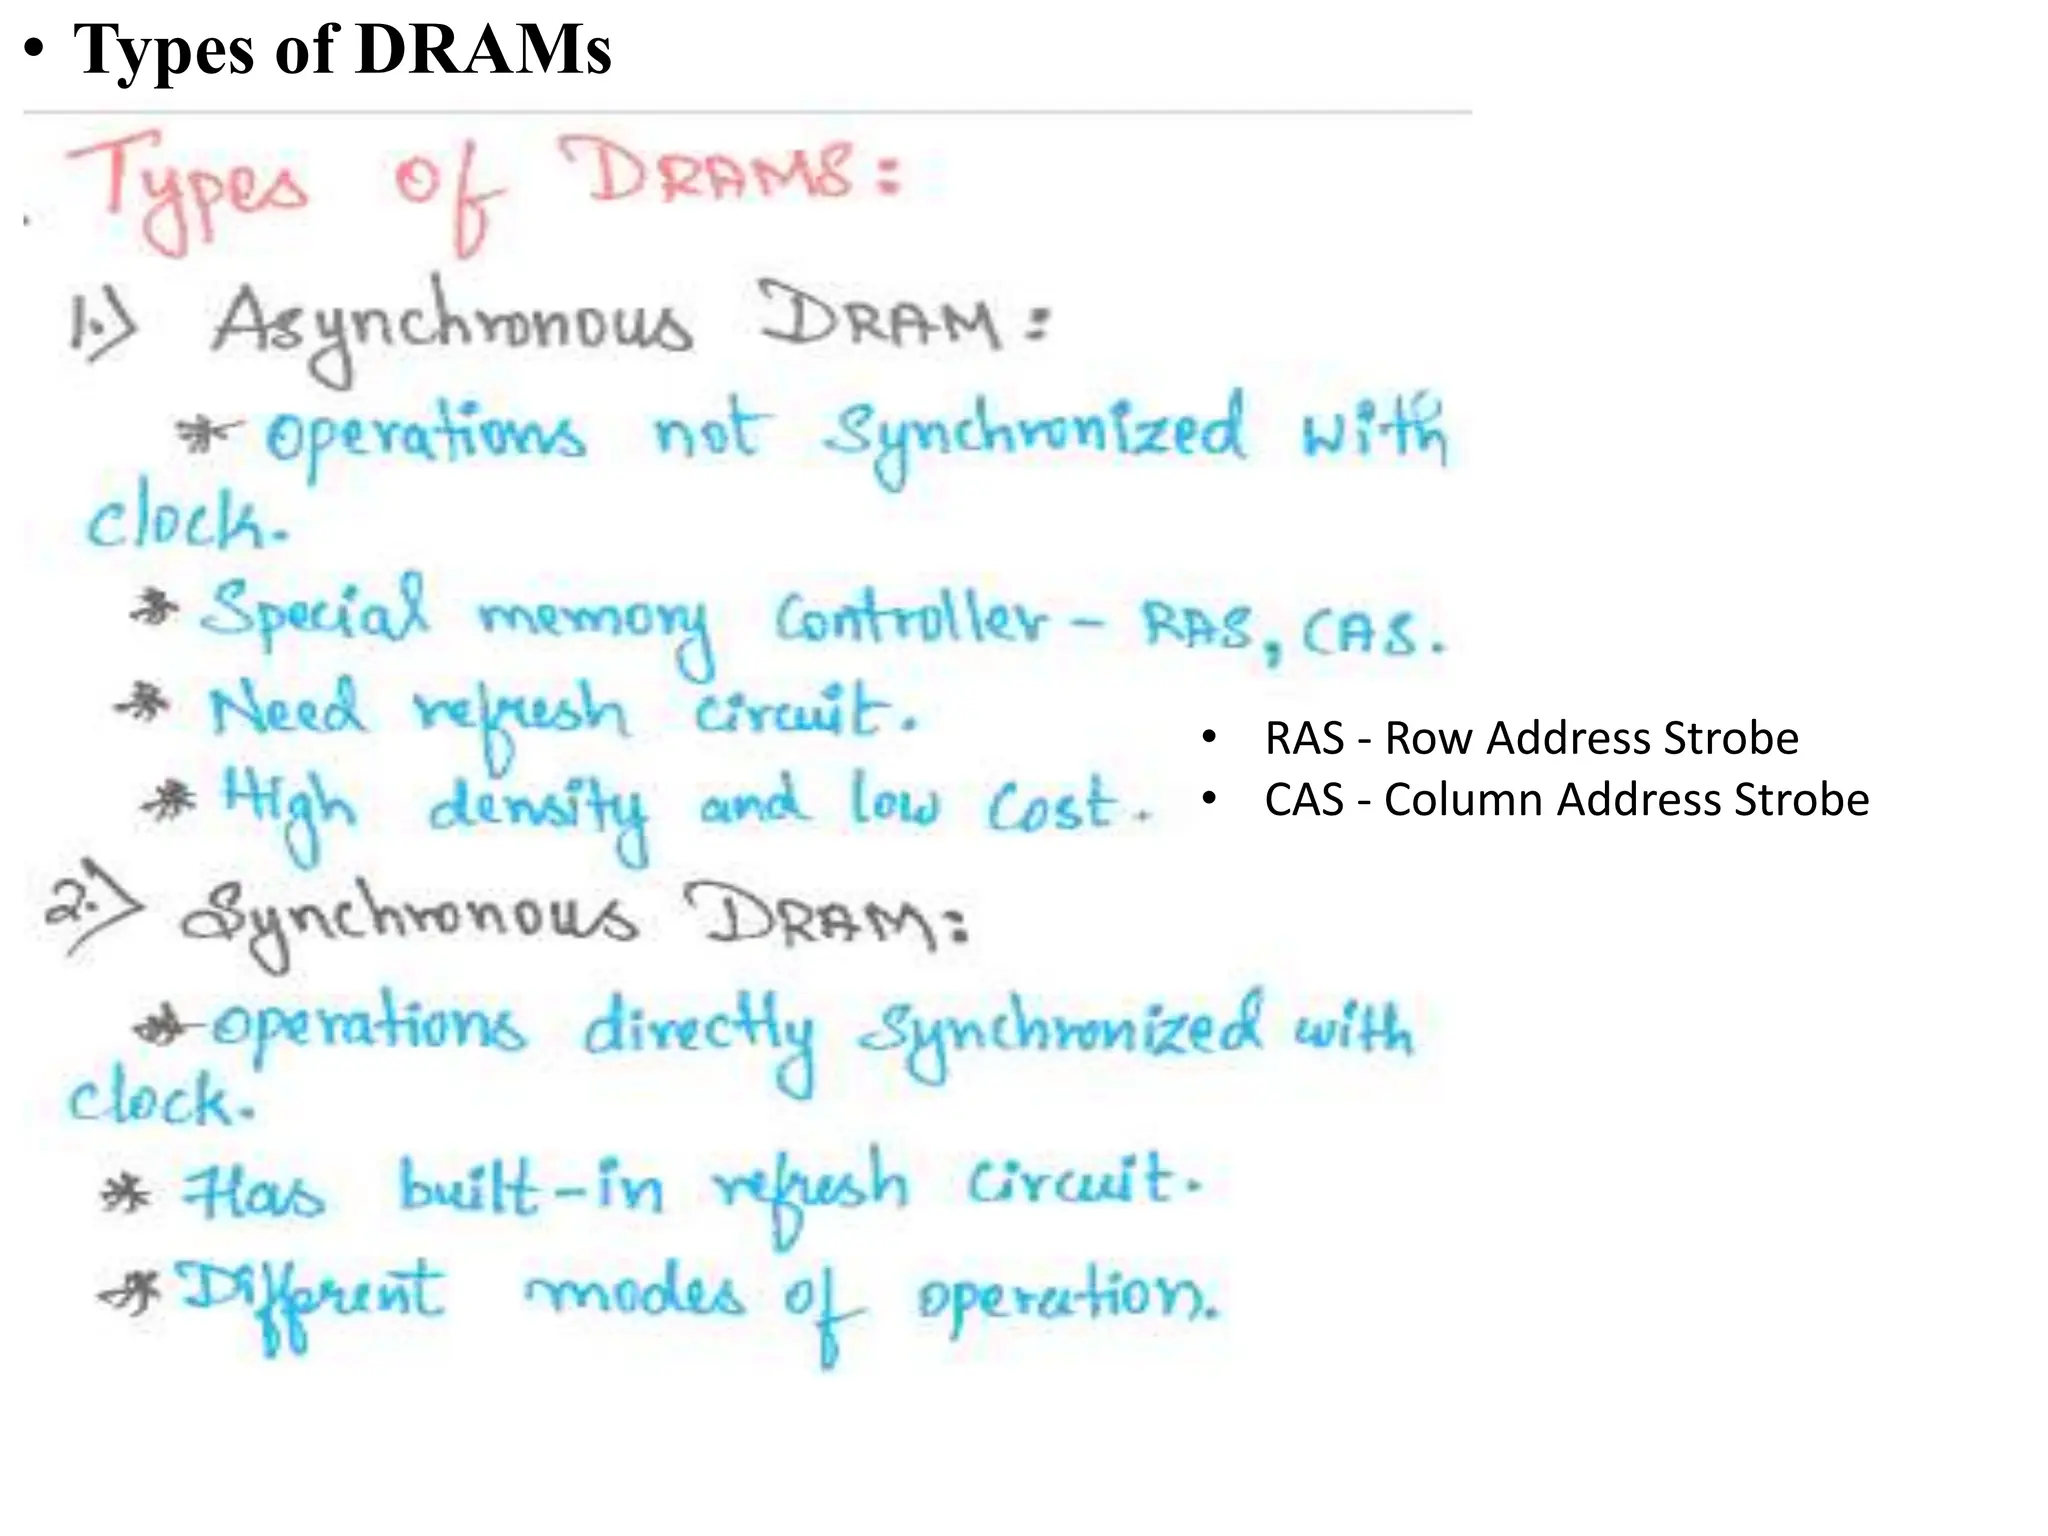 • Types of DRAMs
Types of DRAMS:
1.) Asynchronous DRAM:
* Operations not synchronized with
clock.
* Special memory controller - RAS, CAS.
* Need refresh circuit.
• RAS - Row Address Strobe
* High density and low cost.
• CAS - Column Address Strobe
2.) Synchronous DRAM:
* Operations directly synchronized with
clock.
* Has built-in refresh circuit.
* Different modes of operation.